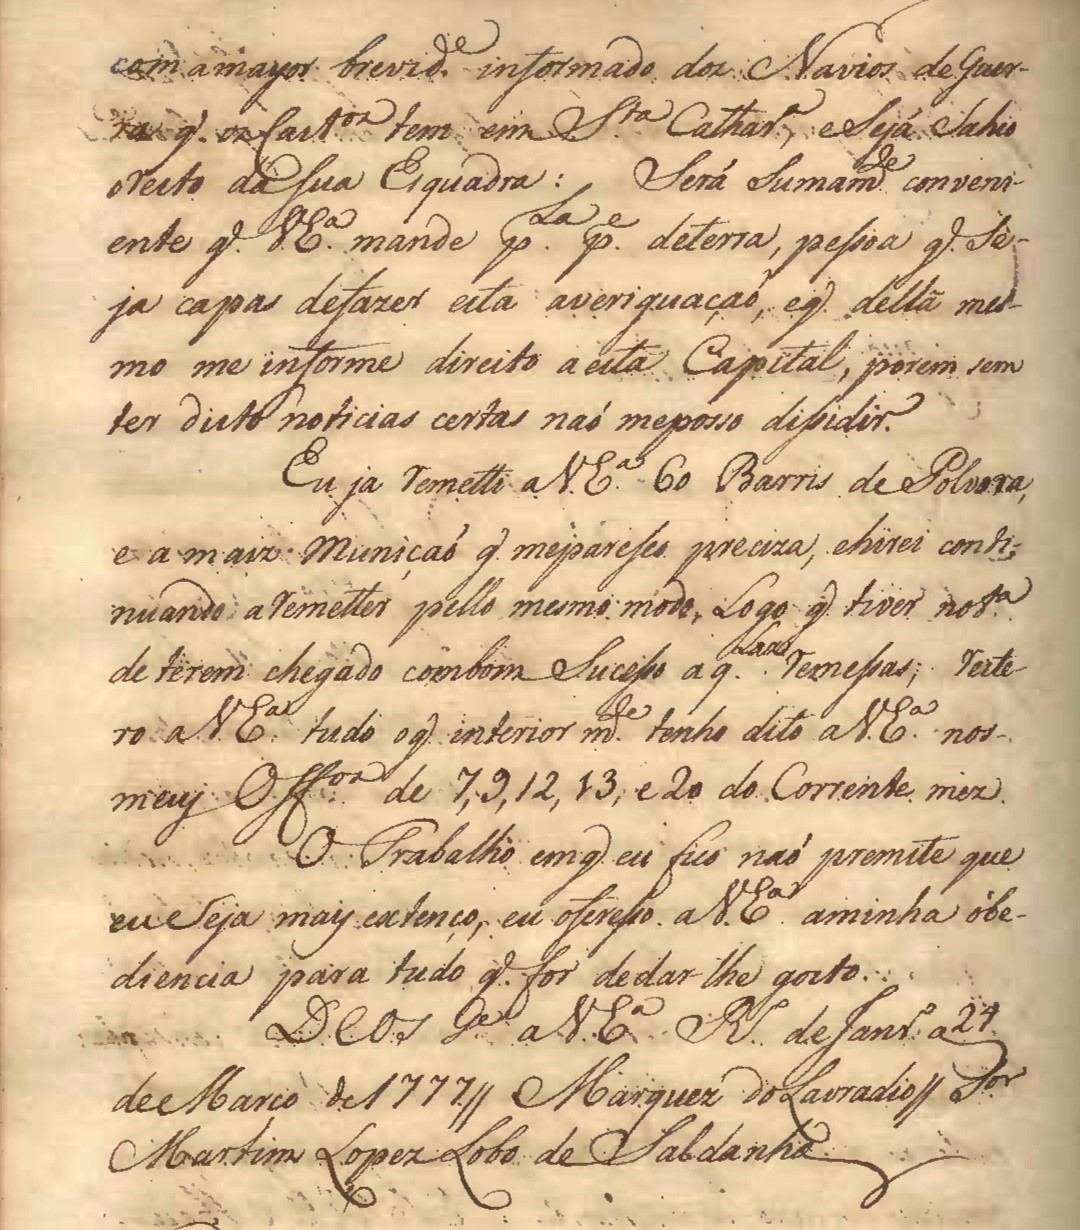 com a mayor brevid.e informado dos Navios de Guer-
ra q. os Cast.os tem em S.ta Cathar.a, e Sejá Sahio
oresto da Sua Esquadra: Será Sumam.de conveni-
ente q. V.Ex.a mande p.la p.e deterra, pessoa q. Se-
ja capas defazer esta averiguaçaó, eq. dellá mes-
mo me informe direito a esta Capital, porem sem
ter disto noticias certas naó meposso dissidir.
Eu ja remetti a V.E.a 60 Barris de Polvora,
e a maiz Muniçaó q. mepareseo preciza, ehirei conti-
nuando aremetter pello mesmo modo, Logo q. tiver not.a
de terem chegado combom Sucesso aq.Las remessas; reite-
ro a V.E.a tudo oq. interior m.de tenho dito a V.E.a nos-
meuj Off.os de 7, 9, 12, 13, e 20 do Corrente mez.
O Trabalho emq. eu fico naó premite que
eu Seja mayz extenço, eu ofresso a V.E.a aminha óbe-
diencia para tudo q. for dedar-lhe gosto.
DEOS G.e a V.E.a R.o de Janr.o a 24
de Março de 1777 // Marquez do Lavradio // S.or
Martim Lopez Lobo de Saldanha